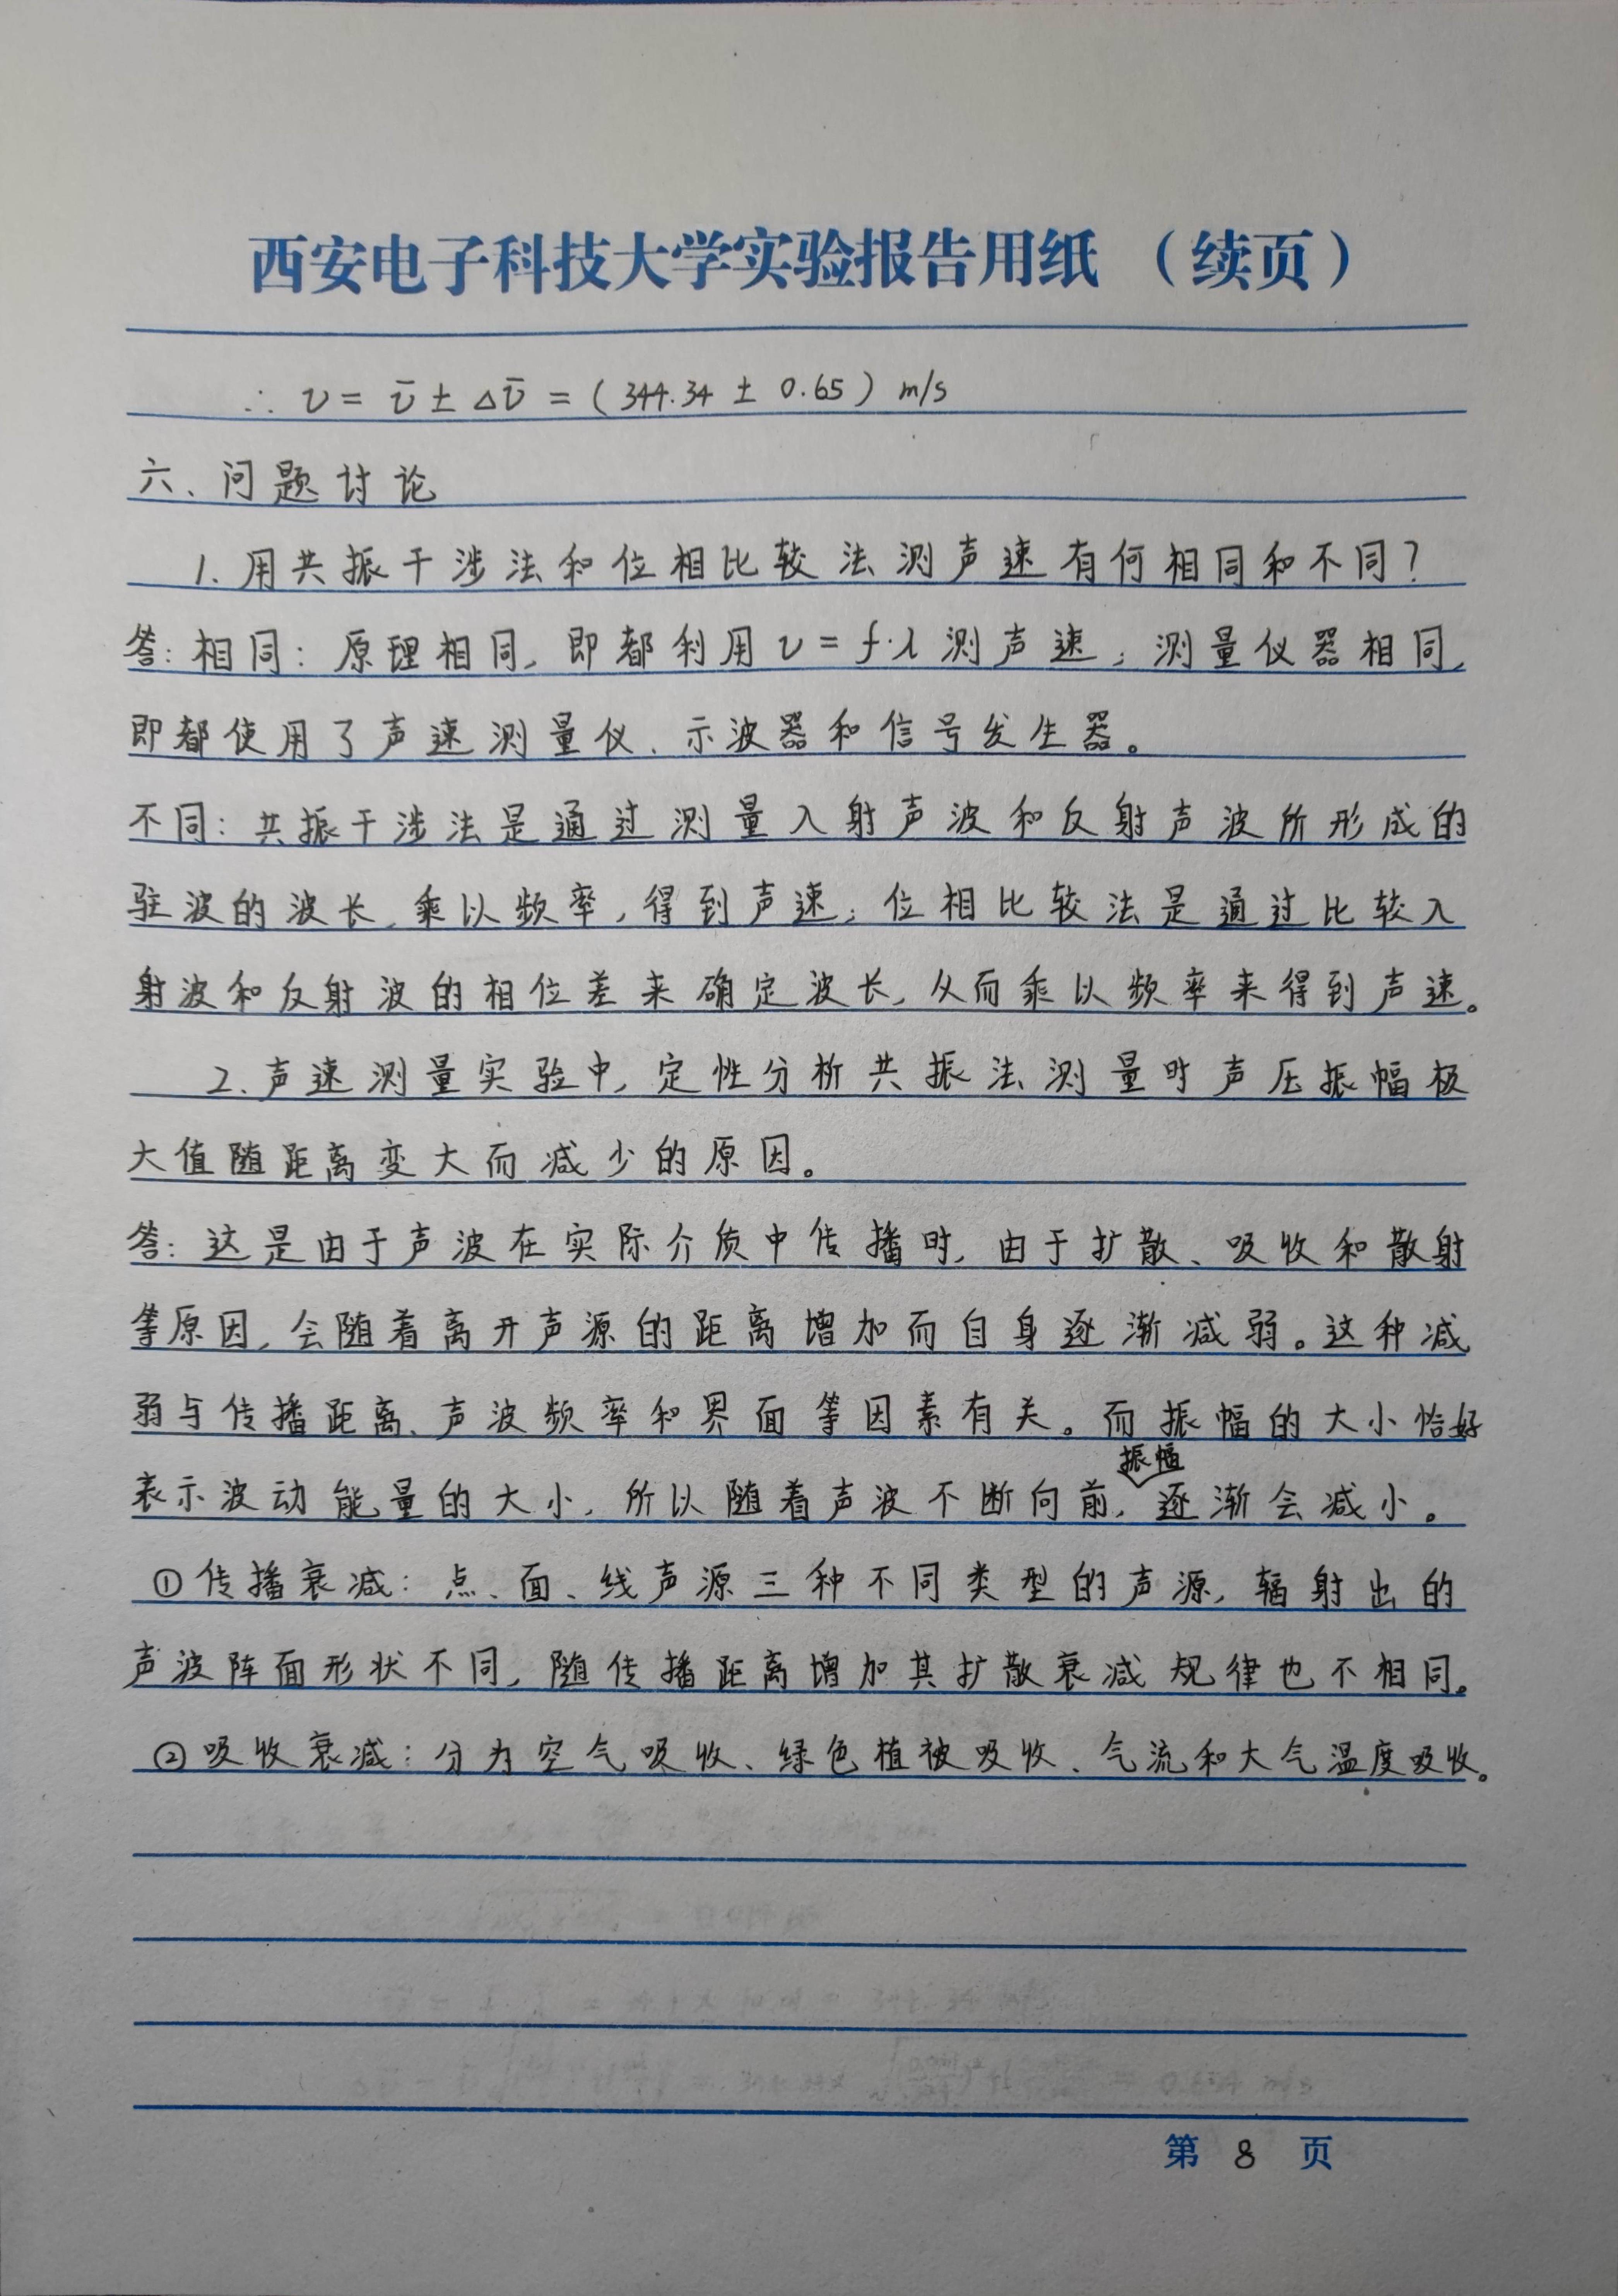 西安电子科技大学实验报告用纸 （续页）
∴ v = v̄ ± Δv̄ = (344.34 ± 0.65) m/s
六、问题讨论
1. 用共振干涉法和位相比较法测声速有何相同和不同?
答: 相同: 原理相同, 即都利用 v = f·λ 测声速; 测量仪器相同,
即都使用了声速测量仪、示波器和信号发生器。
不同: 共振干涉法是通过测量入射声波和反射声波所形成的
驻波的波长, 乘以频率, 得到声速; 位相比较法是通过比较入
射波和反射波的相位差来确定波长, 从而乘以频率来得到声速。
2. 声速测量实验中, 定性分析共振法测量时声压振幅极
大值随距离变大而减少的原因。
答: 这是由于声波在实际介质中传播时, 由于扩散、吸收和散射
等原因, 会随着离开声源的距离增加而自身逐渐减弱。这种减
弱与传播距离、声波频率和界面等因素有关。而振幅的大小恰好
表示波动能量的大小, 所以随着声波不断向前, 振幅逐渐会减小。
①传播衰减: 点、面、线声源三种不同类型的声源, 辐射出的
声波阵面形状不同, 随传播距离增加其扩散衰减规律也不相同。
②吸收衰减: 分为空气吸收、绿色植被吸收、气流和大气温度吸收。
第 8 页